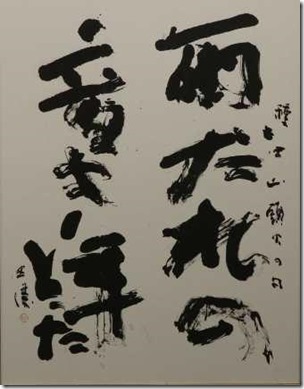 雨たれの
音も年とった
種田山頭火の句